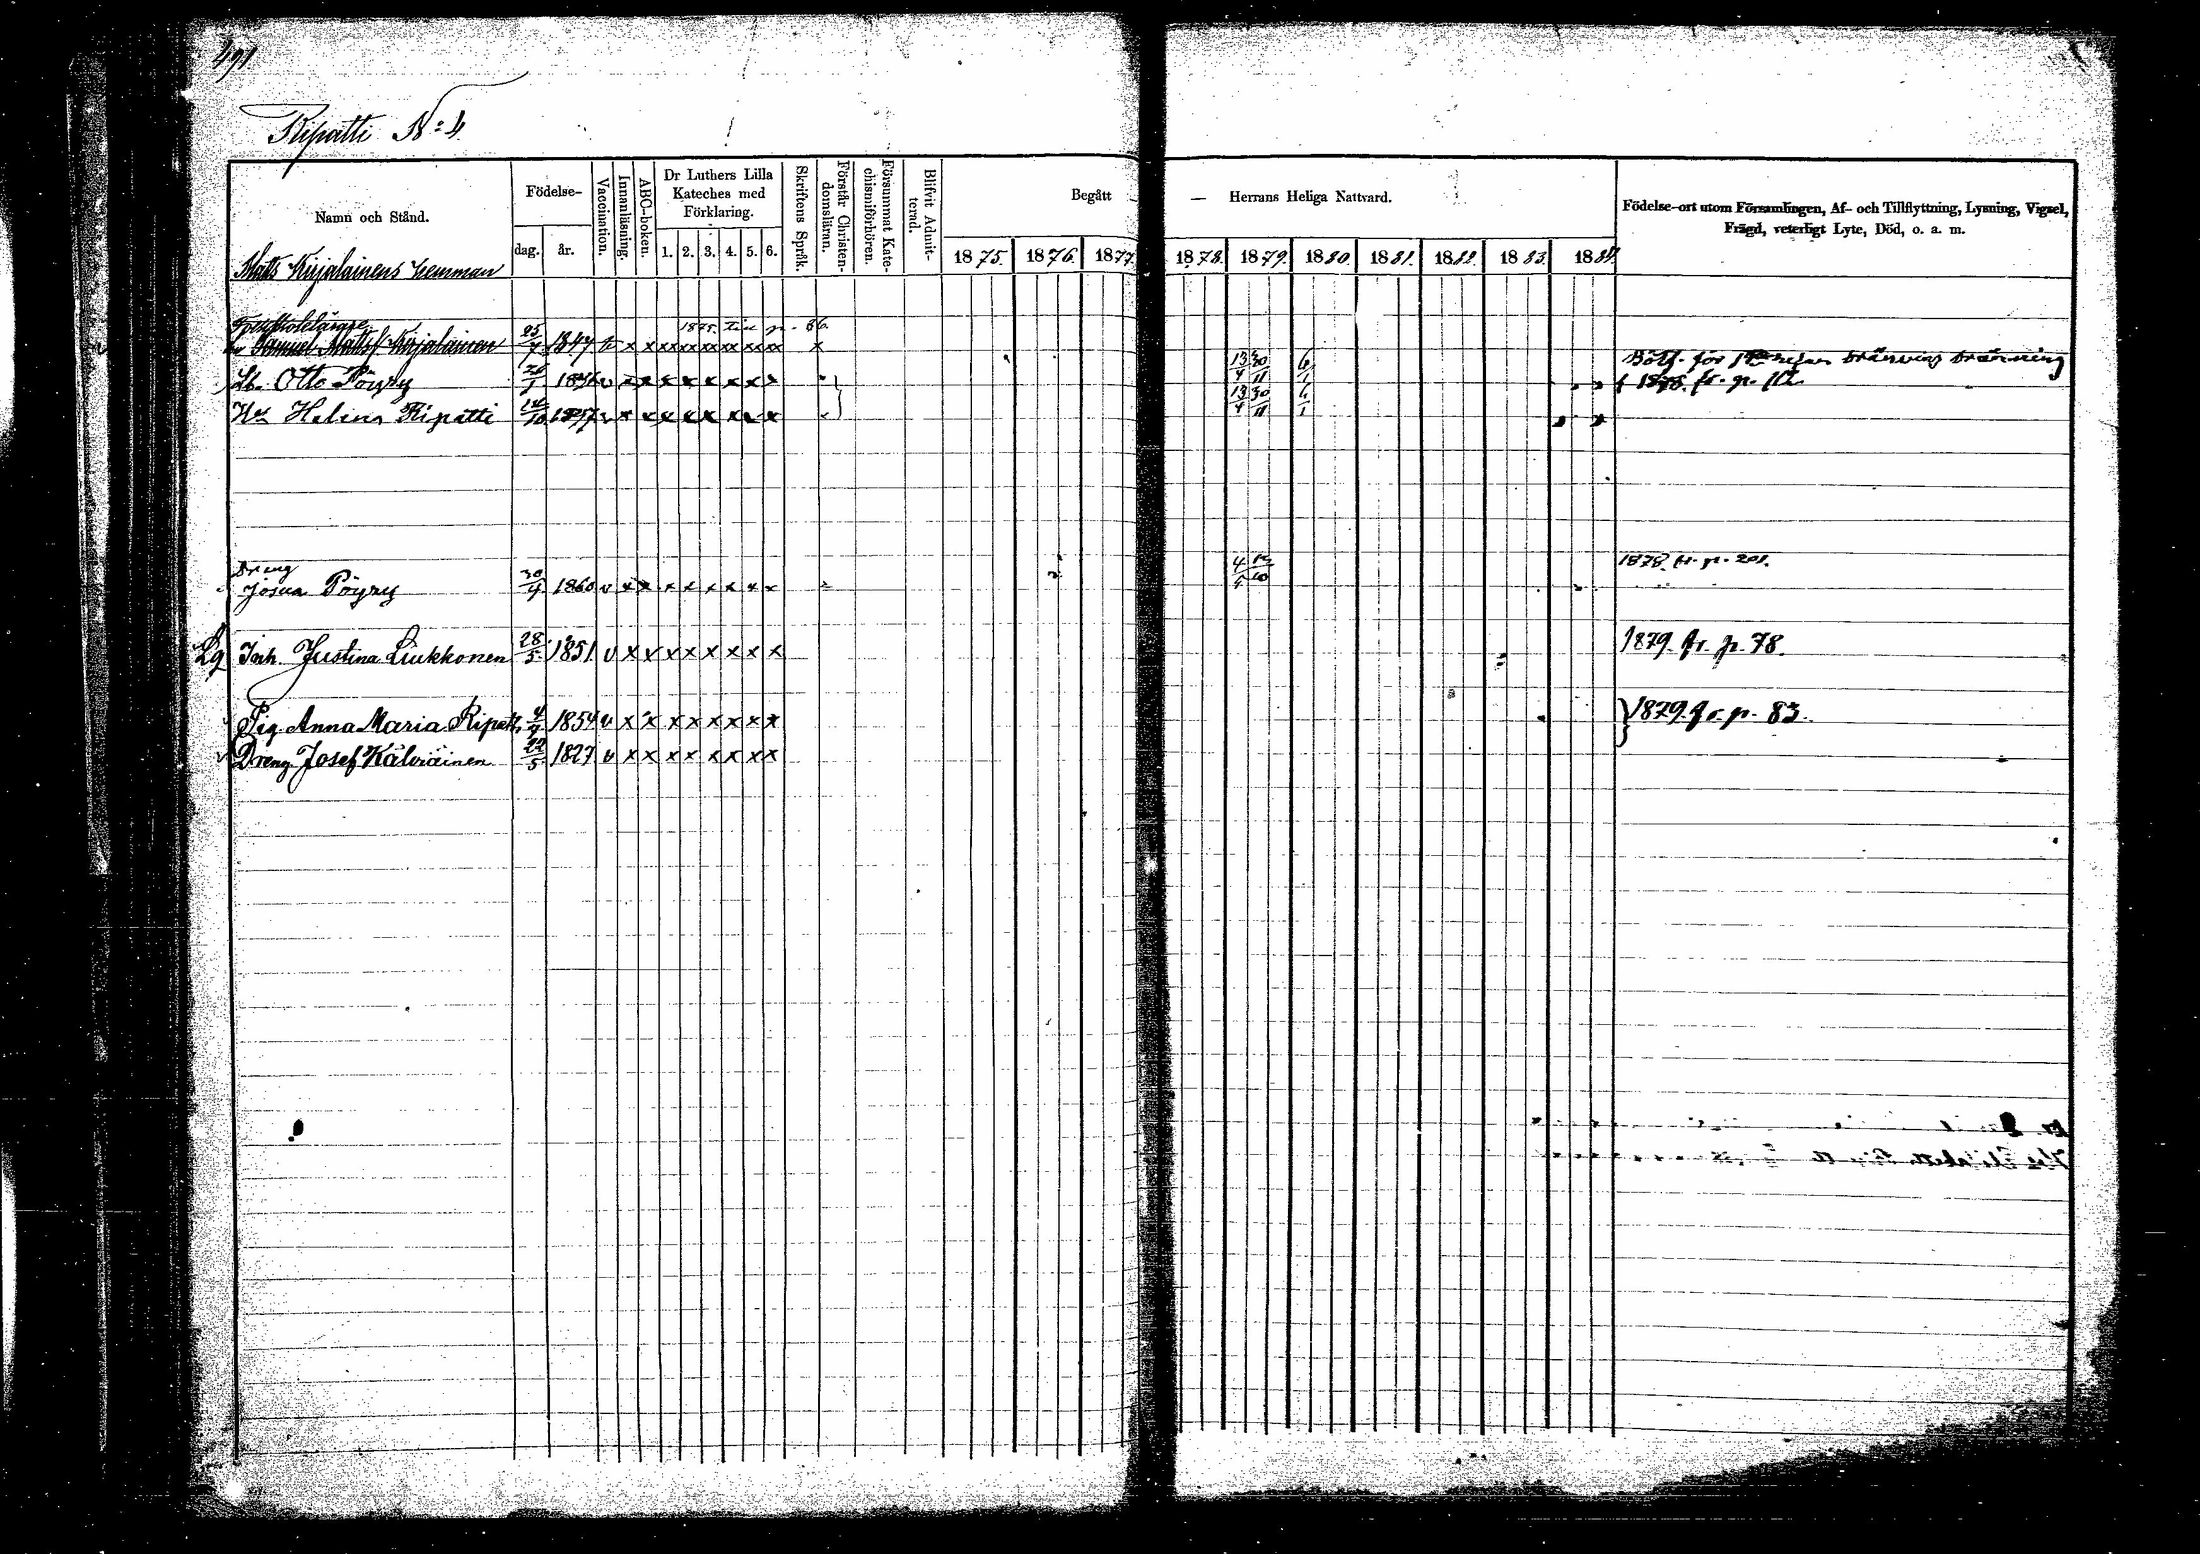 491
Ripatti No 4
Namn och Stånd.
Födelse-
dag.
år.
Vaccination.
Innanläsning.
ABC-boken.
Dr Luthers Lilla
Kateches med
Förklaring.
1. 2. 3. 4. 5. 6.
Skriftens Språk.
Förstår Christen-
domsläran.
Försummat Kate-
chismiförhören.
Blifvit Admit-
terad.
Begått — Herrans Heliga Nattvard.
1875. 1876. 1877. 1878. 1879. 1880. 1881. 1882. 1883. 1884.
Födelse-ort utom Församlingen, Af- och Tillflyttning, Lysning, Vigsel,
Frägd, veterligt Lyte, Död, o. a. m.
Mats Kirjalainens hemman
1875. till p. 86.
Samuel Matsf. Kirjalainen 25/7 1847 x x x x x x x x x
Lb. Otto Pöyry x x x x x x x x 13/4 30/11 6/1
1878. fr. p.
Hu Helena Ripatti 14/10 1857 v x x x x x x x x 13/4 30/11 6/1
Dreng
Josua Pöyry 30/4 1860 v x x x x x x x x 1878. fr. p. 201.
Lg Inh. Justina Liukkonen 28/5 1851. v x x x x x x x x 1879. fr. p. 78.
Pig. Anna Maria Ripatti 4/7 1854 v x x x x x x x x } 1879. fr. p. 83.
Dreng Josef Kälviäinen 22/5 1827 v x x x x x x x x